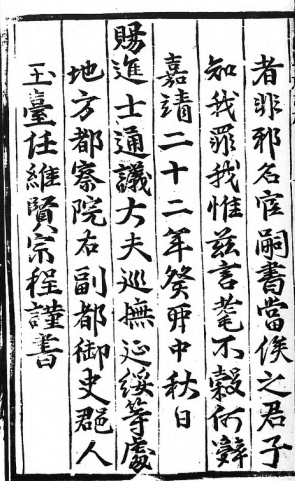 者非邪名宦嗣書當俟之君子
知我罪我惟茲言蓍不穀何辭
嘉靖二十二年癸卯中秋日
賜進士通議大夫巡撫延綏等處
地方都察院右副都御史郡人
玉臺任維賢宗程謹書